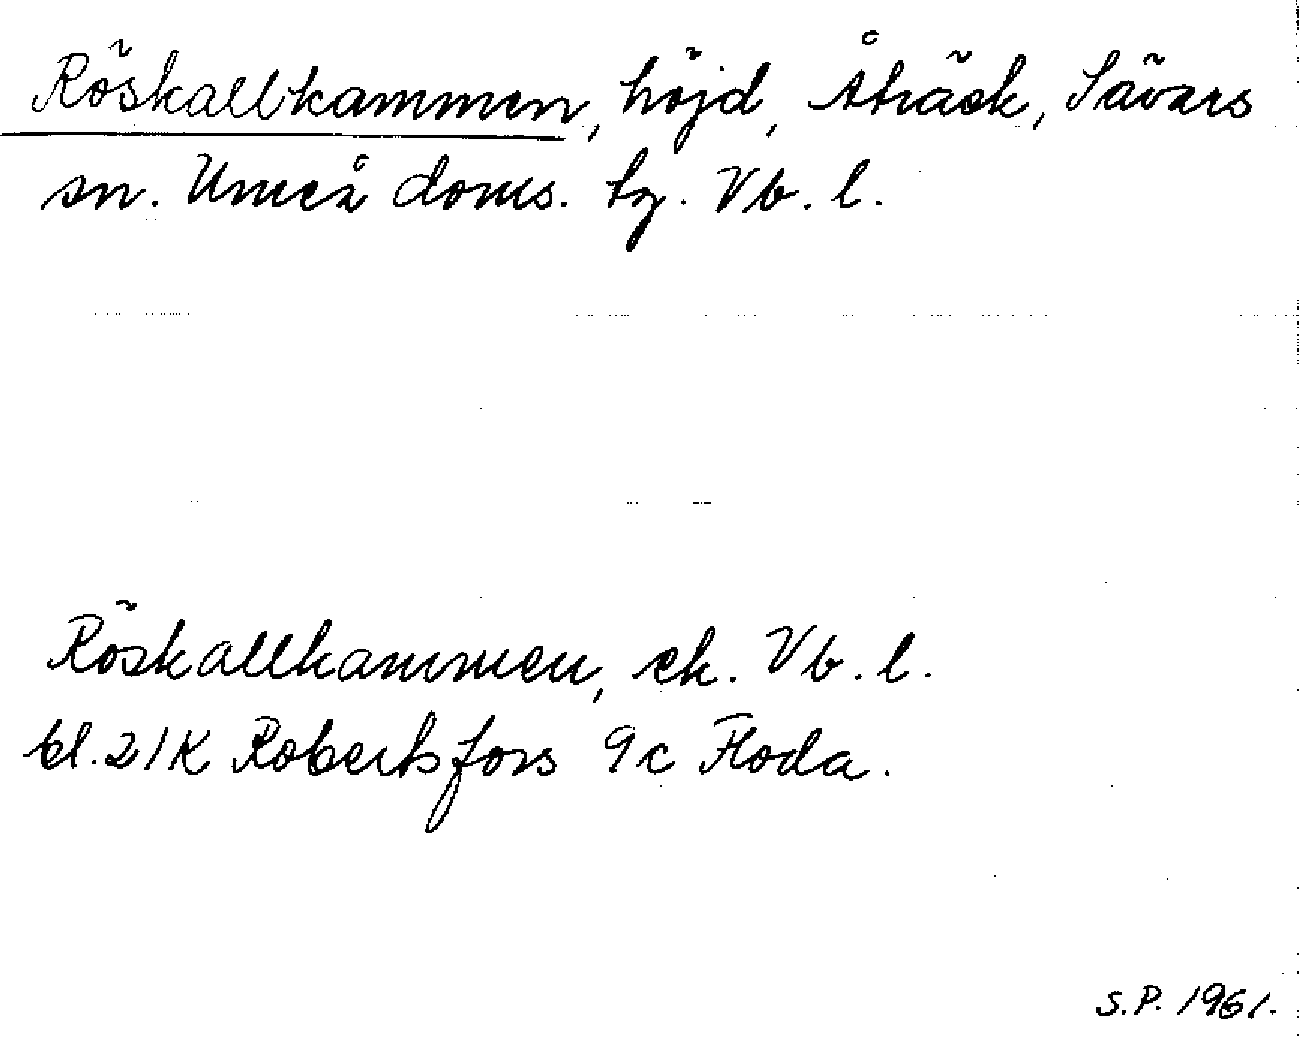 Röskallkammen, höjd, Åträsk, Sävars
sn. Umeå doms. tg. Vb. l.
Röskallkammen, ek. Vb. l.
bl. 21K Robertsfors 9c Floda.
S.P. 1961.